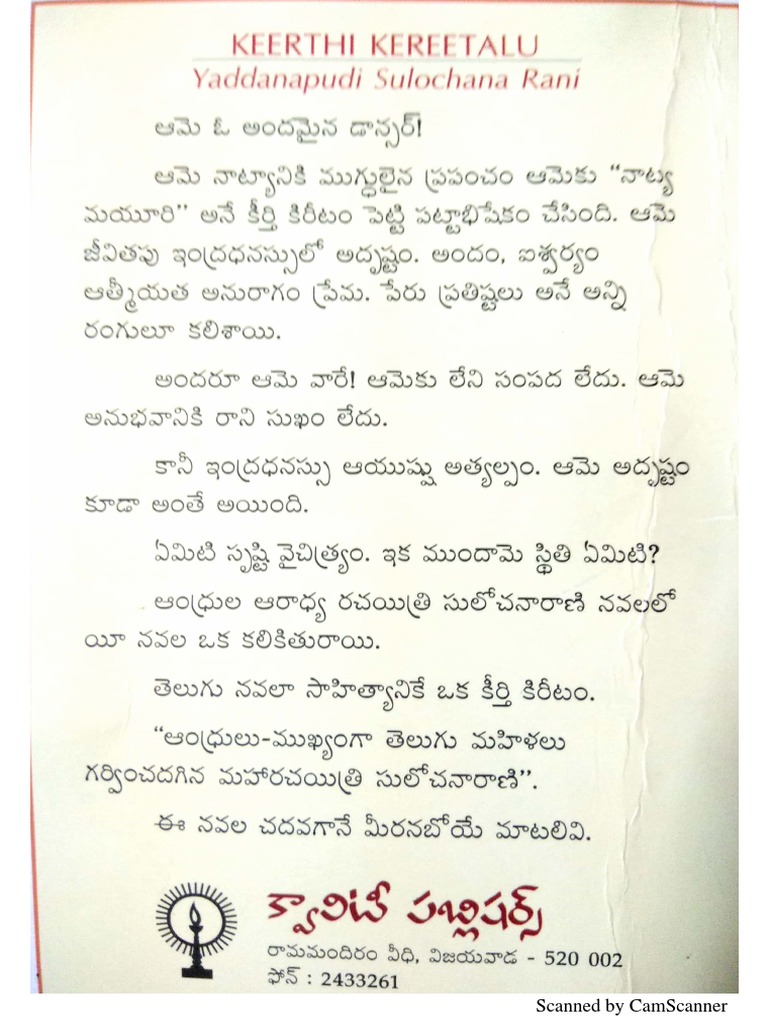 KEERTHI KEREETALU
Yaddanapudi Sulochana Rani
ఆమె ఓ అందమైన డాన్సర్!
ఆమె నాట్యానికి ముగ్ధులైన ప్రపంచం ఆమెకు “నాట్య
మయూరి” అనే కీర్తి కిరీటం పెట్టి పట్టాభిషేకం చేసింది. ఆమె
జీవితపు ఇంద్రధనస్సులో అదృష్టం. అందం, ఐశ్వర్యం
ఆత్మీయత అనురాగం ప్రేమ. పేరు ప్రతిష్టలు అనే అన్ని
రంగులూ కలిశాయి.
అందరూ ఆమె వారే! ఆమెకు లేని సంపద లేదు. ఆమె
అనుభవానికి రాని సుఖం లేదు.
కానీ ఇంద్రధనస్సు ఆయుష్షు అత్యల్పం. ఆమె అదృష్టం
కూడా అంతే అయింది.
ఏమిటి సృష్టి వైచిత్ర్యం. ఇక ముందామె స్థితి ఏమిటి?
ఆంధ్రుల ఆరాధ్య రచయిత్రి సులోచనారాణి నవలలో
యీ నవల ఒక కలికితురాయి.
తెలుగు నవలా సాహిత్యానికే ఒక కీర్తి కిరీటం.
“ఆంధ్రులు-ముఖ్యంగా తెలుగు మహిళలు
గర్వించదగిన మహారచయిత్రి సులోచనారాణి”.
ఈ నవల చదవగానే మీరనబోయే మాటలివి.
క్వాలిటీ పబ్లిషర్స్
రామమందిరం వీధి, విజయవాడ - 520 002
ఫోన్ : 2433261
Scanned by CamScanner